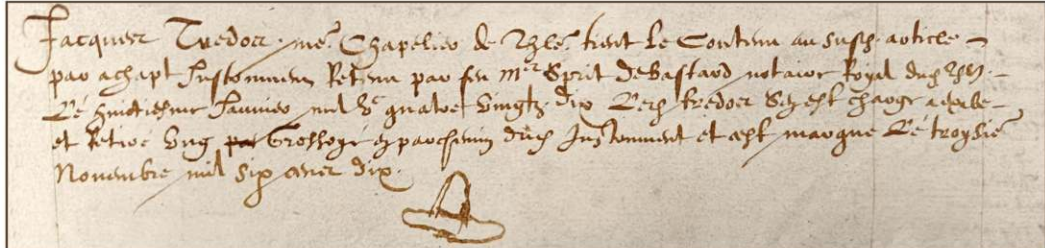 Jacques Tredos me chapelier de Thle tient le contenu au susd article
par achapt Instrument Retenu par feu mr Sprit de Bastard notaire Royal dud Thle
le huictiesme Janvier mil Vc quatre vingtz dix led tredos sest charge
et Retire ung Grossoye en parchemin dud Instrument et est marque le troysie
Novembre mil six cens dix